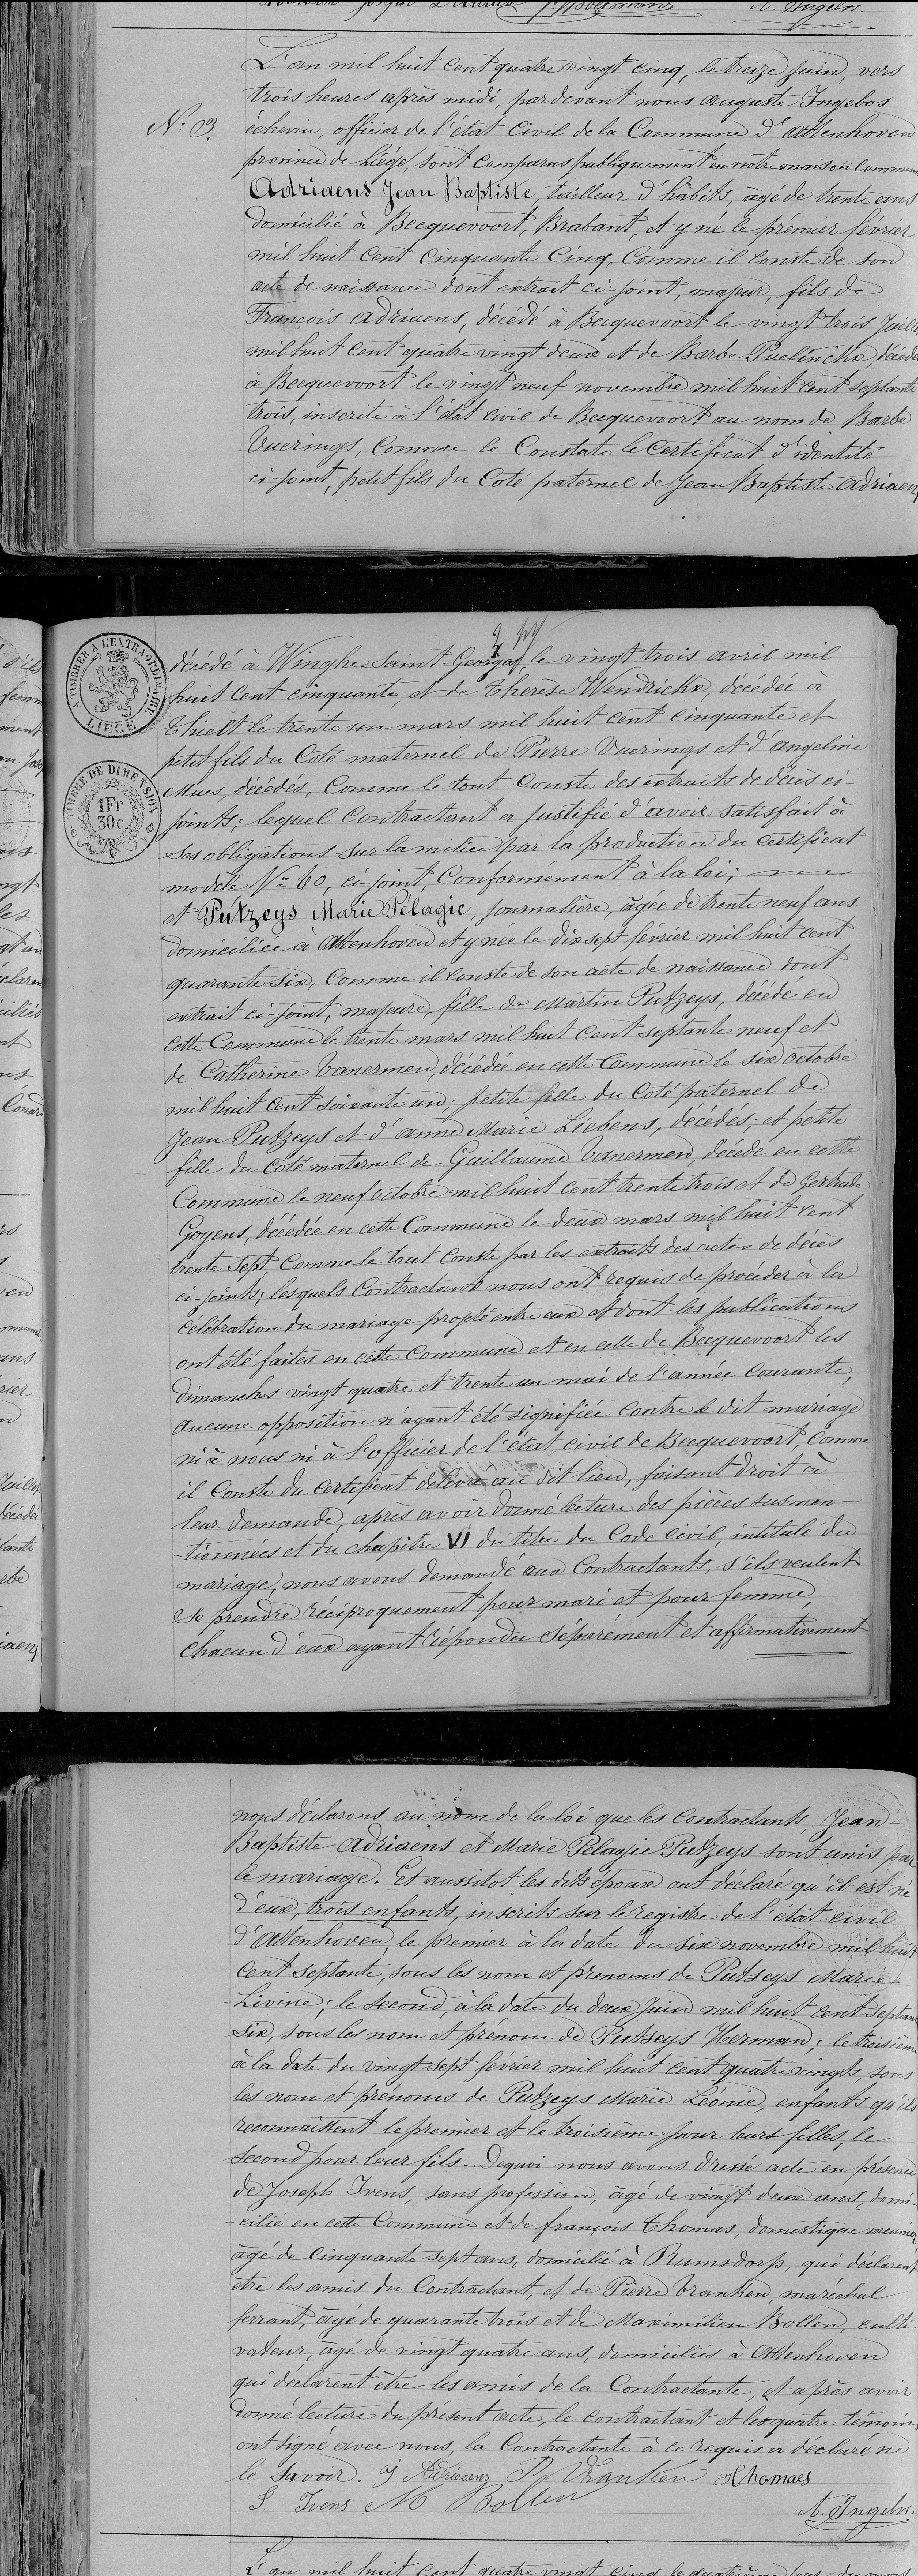 A. Ingelbos.
L'an mil huit cent quatre vingt cinq, le treize juin, vers
trois heures après midi, pardevant nous Auguste Ingelbos
N° 3. échevin, officier de l'état civil de la Commune d'Attenhoven
province de Liége, sont comparus publiquement en notre maison Commune
Adriaens Jean Baptiste, tailleur d'habits, âgé de trente ans
domicilié à Becquevoort, Brabant, et y né le prémier février
mil huit Cent Cinquante Cinq, Comme il conste de son
acte de naissance dont extrait ci-joint, majeur, fils de
François Adriaens, décédé à Becquevoort le vingt trois Juille
mil huit cent quatre vingt deux et de Barbe Puelinckx, décéde
à Becquevoort le vingt neuf novembre mil huit cent septante
trois, inscrite à l'état civil de Becquevoort au nom de Barbe
Vuerings, Comme le Constate le Certificat d'identité
ci-joint, petit fils du Coté paternel de Jean Baptiste Adriaens
A TIMBRER A L'EXTRAORDINAIRE
LIEGE
TIMBRE DE DIMENSION
1Fr
30c
décédé à Winghe-Saint-Georges, le vingt trois avril mil
huit cent cinquante, et de Therèse Wendrickx, décédée à
Thielt le trente un mars mil huit cent cinquante et
petit fils du Coté maternel de Pierre Vuerings et d'Angeline
Mues, décédés, Comme le tout Conste des extraits de décès ci-
joints; lequel Contractant a justifié d'avoir satisfait à
ses obligations sur la milice par la production du certificat
modèle N° 60, ci-joint, Conformément à la loi;
et Putzeys Marie Pélagie, journalière, âgée de trente neuf ans
domiciliée à Attenhoven et y née le dix sept février mil huit cent
quarante six, Comme il conste de son acte de naissance dont
extrait ci-joint, majeure, fille de Martin Putzeys, décédé en
cette Commune le trente mars mil huit cent septante neuf et
de Catherine Vanermen, décédée en cette Commune le six octobre
mil huit cent soixante un; petite fille du Coté paternel de
Jean Putzeys et d'anne Marie Liebens, décédés; et petite
fille du coté maternel de Guillaume Vanermen, décédé en cette
Commune le neuf octobre mil huit cent trente trois et de Gertrude
Goyens, décédée en cette Commune le deux mars mil huit cent
trente sept, Comme le tout Conste par les extraits des actes de décès
ci-joints; lesquels Contractants nous ont requis de procéder à la
célébration du mariage projeté entre eux et dont les publications
ont été faites en cette Commune et en celle de Becquevoort les
dimanches vingt quatre et trente un mai de l'année courante,
aucune opposition n'ayant été signifiée contre le dit mariage
ni à nous ni à l'officier de l'état civil de Becquevoort, Comme
il Conste du certificat délivré au dit lieu, faisant droit à
leur demande, après avoir donné lecture des pièces susmen-
-tionnées et du chapitre VI du titre du Code civil, intitulé du
mariage, nous avons demandé aux Contractants, s'ils veulent
se prendre réciproquement pour mari et pour femme,
chacun d'eux ayant répondu séparément et affirmativement
nous déclarons au nom de la loi que les Contractants, Jean-
Baptiste Adriaens et Marie Pelagie Putzeys sont unis par
le mariage. Et aussitot les dits époux ont déclaré qu'il est né
d'eux, trois enfants, inscrits sur le registre de l'état civil
d'Attenhoven, le premier à la date du six novembre mil huit
Cent septante, sous les nom et prenoms de Putseys Marie-
-Livine; le second, à la date du deux Juin mil huit cent septan
six, sous les nom et prénom de Putseys Herman; le troisième
à la date du vingt sept février mil huit cent quatre vingts, sous
les nom et prénoms de Putzeys Marie Léonie, enfants qu'ils
reconnaissent le premier et le troisième pour leurs filles, le
second pour leur fils. Dequoi nous avons dressé acte en présence
de Joseph Ivens, sans profession, âgé de vingt deux ans, domi-
-cilié en cette Commune et de françois Thomas, domestique meunier
âgé de cinquante sept ans, domicilié à Rumsdorp, qui déclarent
être les amis du Contractant, et de Pierre Vranken, maréchal
ferrant, âgé de quarante trois et de Maximilien Bollen, culti-
vateur, âgé de vingt quatre ans, domiciliés à Attenhoven
qui déclarent être les amis de la Contractante, et après avoir
donné lecture du présent acte, le contractant et les quatre témoins
ont signé avec nous, la Contractante à ce requis a déclaré ne
le savoir. J Adriaens P Vranken Thomaes
J. Ivens M Bollen
A. Ingelbos
L'an mil huit cent quatre vingt cinq le quatrième